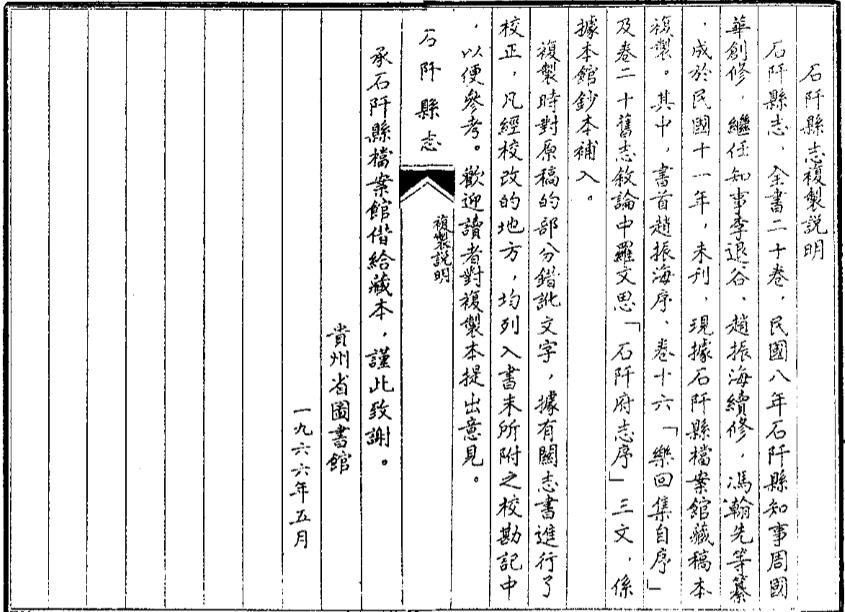 石阡縣志複製説明
石阡縣志、全書二十卷，民國八年石阡縣知事周國
華創修，繼任知事李退谷、趙振海續修，馮翰先等纂
，成於民國十一年，未刊，現據石阡縣檔案館藏稿本
複製。其中，書首趙振海序、卷十六「樂回集自序」
及卷二十舊志敘論中羅文思「石阡府志序」三文，係
據本館鈔本補入。
複製時對原稿的部分錯訛文字，據有關志書進行了
校正，凡經校改的地方，均列入書末所附之校勘記中
，以便參考。歡迎讀者對複製本提出意見。
石阡縣志
複製説明
承石阡縣檔案館借給藏本，謹此致謝。
貴州省圖書館
一九六六年五月